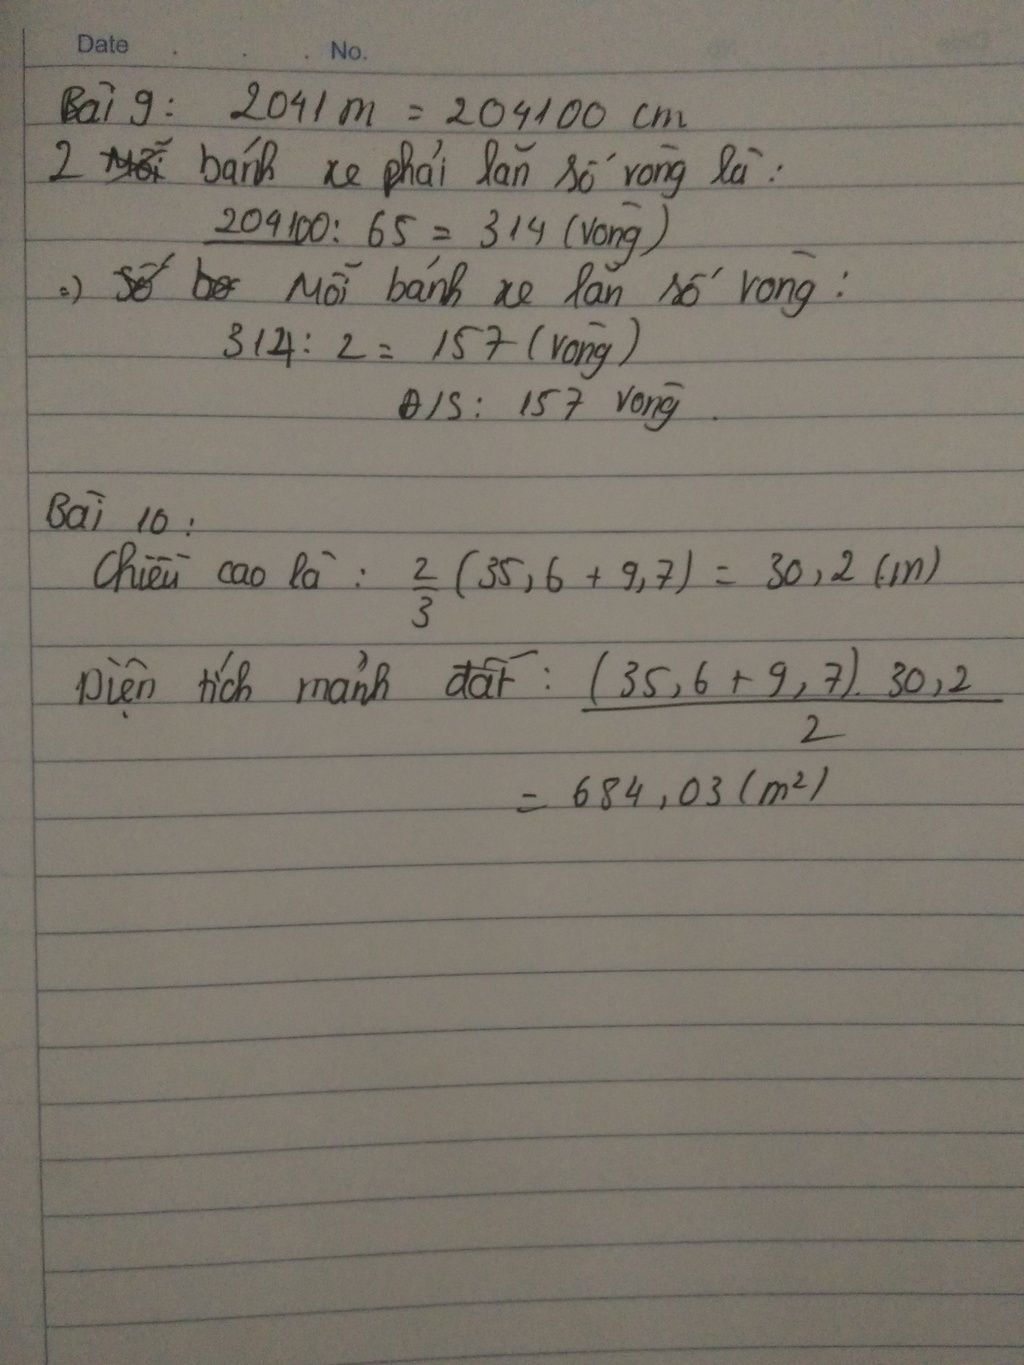 Date . . . No.
Bài 9: 2041 m = 204100 cm
2 Mỗi bánh xe phải lăn số vòng là:
204100: 65 = 314 (vòng)
=) Số bá Mỗi bánh xe lăn số vòng:
314: 2 = 157 (vòng)
Đ/S: 157 vòng.
Bài 10:
Chiều cao là: 2/3 (35,6 + 9,7) = 30,2 (m)
Diện tích mảnh đất: (35,6 + 9,7). 30,2 / 2
= 684,03 (m²)